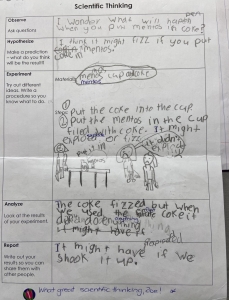 Scientific Thinking
Observe
Ask questions
I Wonder What will happen
when you put mentos in coke?
Hypothesize
Make a prediction
- what do you think
will be the result?
I think it might fizz if you put
mentos.
coke in
Experiment
Try out different
ideas. Write a
procedure so you
know what to do.
Materials
mentos cup and coke
mentos
Steps
1 put the coke into the cup
2 put the mentos in the cup
filled with coke. It might
explode or fizz.
put it in
it didn't
explode
Analyze
Look at the results
of your experiment.
The coke fizzed but when
we used the coke it
Report
Write out your
results so you can
share them with
other people.
It might have if we
shook it up.
What great scientific thinking,